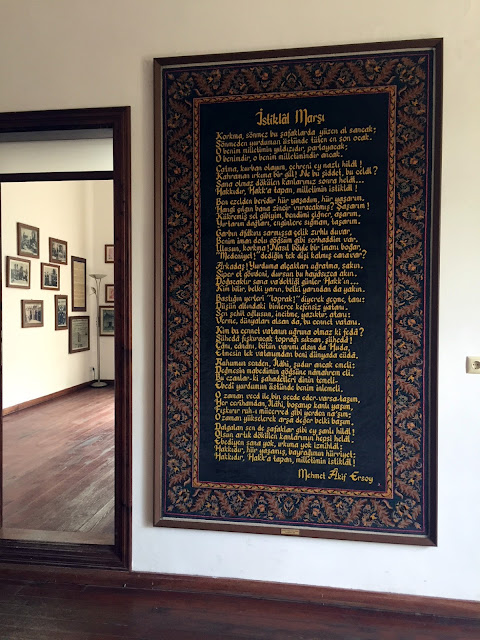 İstiklâl Marşı
Korkma, sönmez bu şafaklarda yüzen al sancak;
Sönmeden yurdumun üstünde tüten en son ocak.
O benim milletimin yıldızıdır, parlayacak;
O benimdir, o benim milletimindir ancak.
Çatma, kurban olayım, çehreni ey nazlı hilâl!
Kahraman ırkıma bir gül! Ne bu şiddet, bu celâl?
Sana olmaz dökülen kanlarımız sonra helâl...
Hakkıdır, Hakk'a tapan, milletimin istiklâl!
Ben ezelden beridir hür yaşadım, hür yaşarım,
Hangi çılgın bana zincir vuracakmış? Şaşarım!
Kükremiş sel gibiyim, bendimi çiğner, aşarım,
Yırtarım dağları, enginlere sığmam, taşarım.
Garbın âfâkını sarmışsa çelik zırhlı duvar,
Benim iman dolu göğsüm gibi serhaddim var.
Ulusun, korkma! Nasıl böyle bir imanı boğar,
"Medeniyet!" dediğin tek dişi kalmış canavar?
Arkadaş! Yurduma alçakları uğratma, sakın.
Siper et gövdeni, dursun bu hayâsızca akın.
Doğacaktır sana va'dettiği günler Hakk'ın...
Kim bilir, belki yarın, belki yarından da yakın.
Bastığın yerleri "toprak!" diyerek geçme, tanı:
Düşün altındaki binlerce kefensiz yatanı.
Sen şehit oğlusun, incitme, yazıktır, atanı:
Verme, dünyaları alsan da, bu cennet vatanı.
Kim bu cennet vatanın uğruna olmaz ki fedâ?
Şühedâ fışkıracak toprağı sıksan, şühedâ!
Cânı, cânânı, bütün varımı alsın da Huda,
Etmesin tek vatanımdan beni dünyada cüdâ.
Ruhumun senden, İlâhi, şudur ancak emeli:
Değmesin mabedimin göğsüne nâmahrem eli.
Bu ezanlar-ki şahadetleri dinin temeli-
Ebedî yurdumun üstünde benim inlemeli.
O zaman vecd ile bin secde eder-varsa-taşım,
Her cerîhamdan, İlâhi, boşanıp kanlı yaşım,
Fışkırır ruh-ı mücerred gibi yerden na'şım;
O zaman yükselerek arşa değer belki başım.
Dalgalan sen de şafaklar gibi ey şanlı hilâl!
Olsun artık dökülen kanlarımın hepsi helâl.
Ebediyen sana yok, ırkıma yok izmihlâl:
Hakkıdır, hür yaşamış, bayrağımın hürriyet;
Hakkıdır, Hakk'a tapan, milletimin istiklâl!
Mehmet Âkif Ersoy